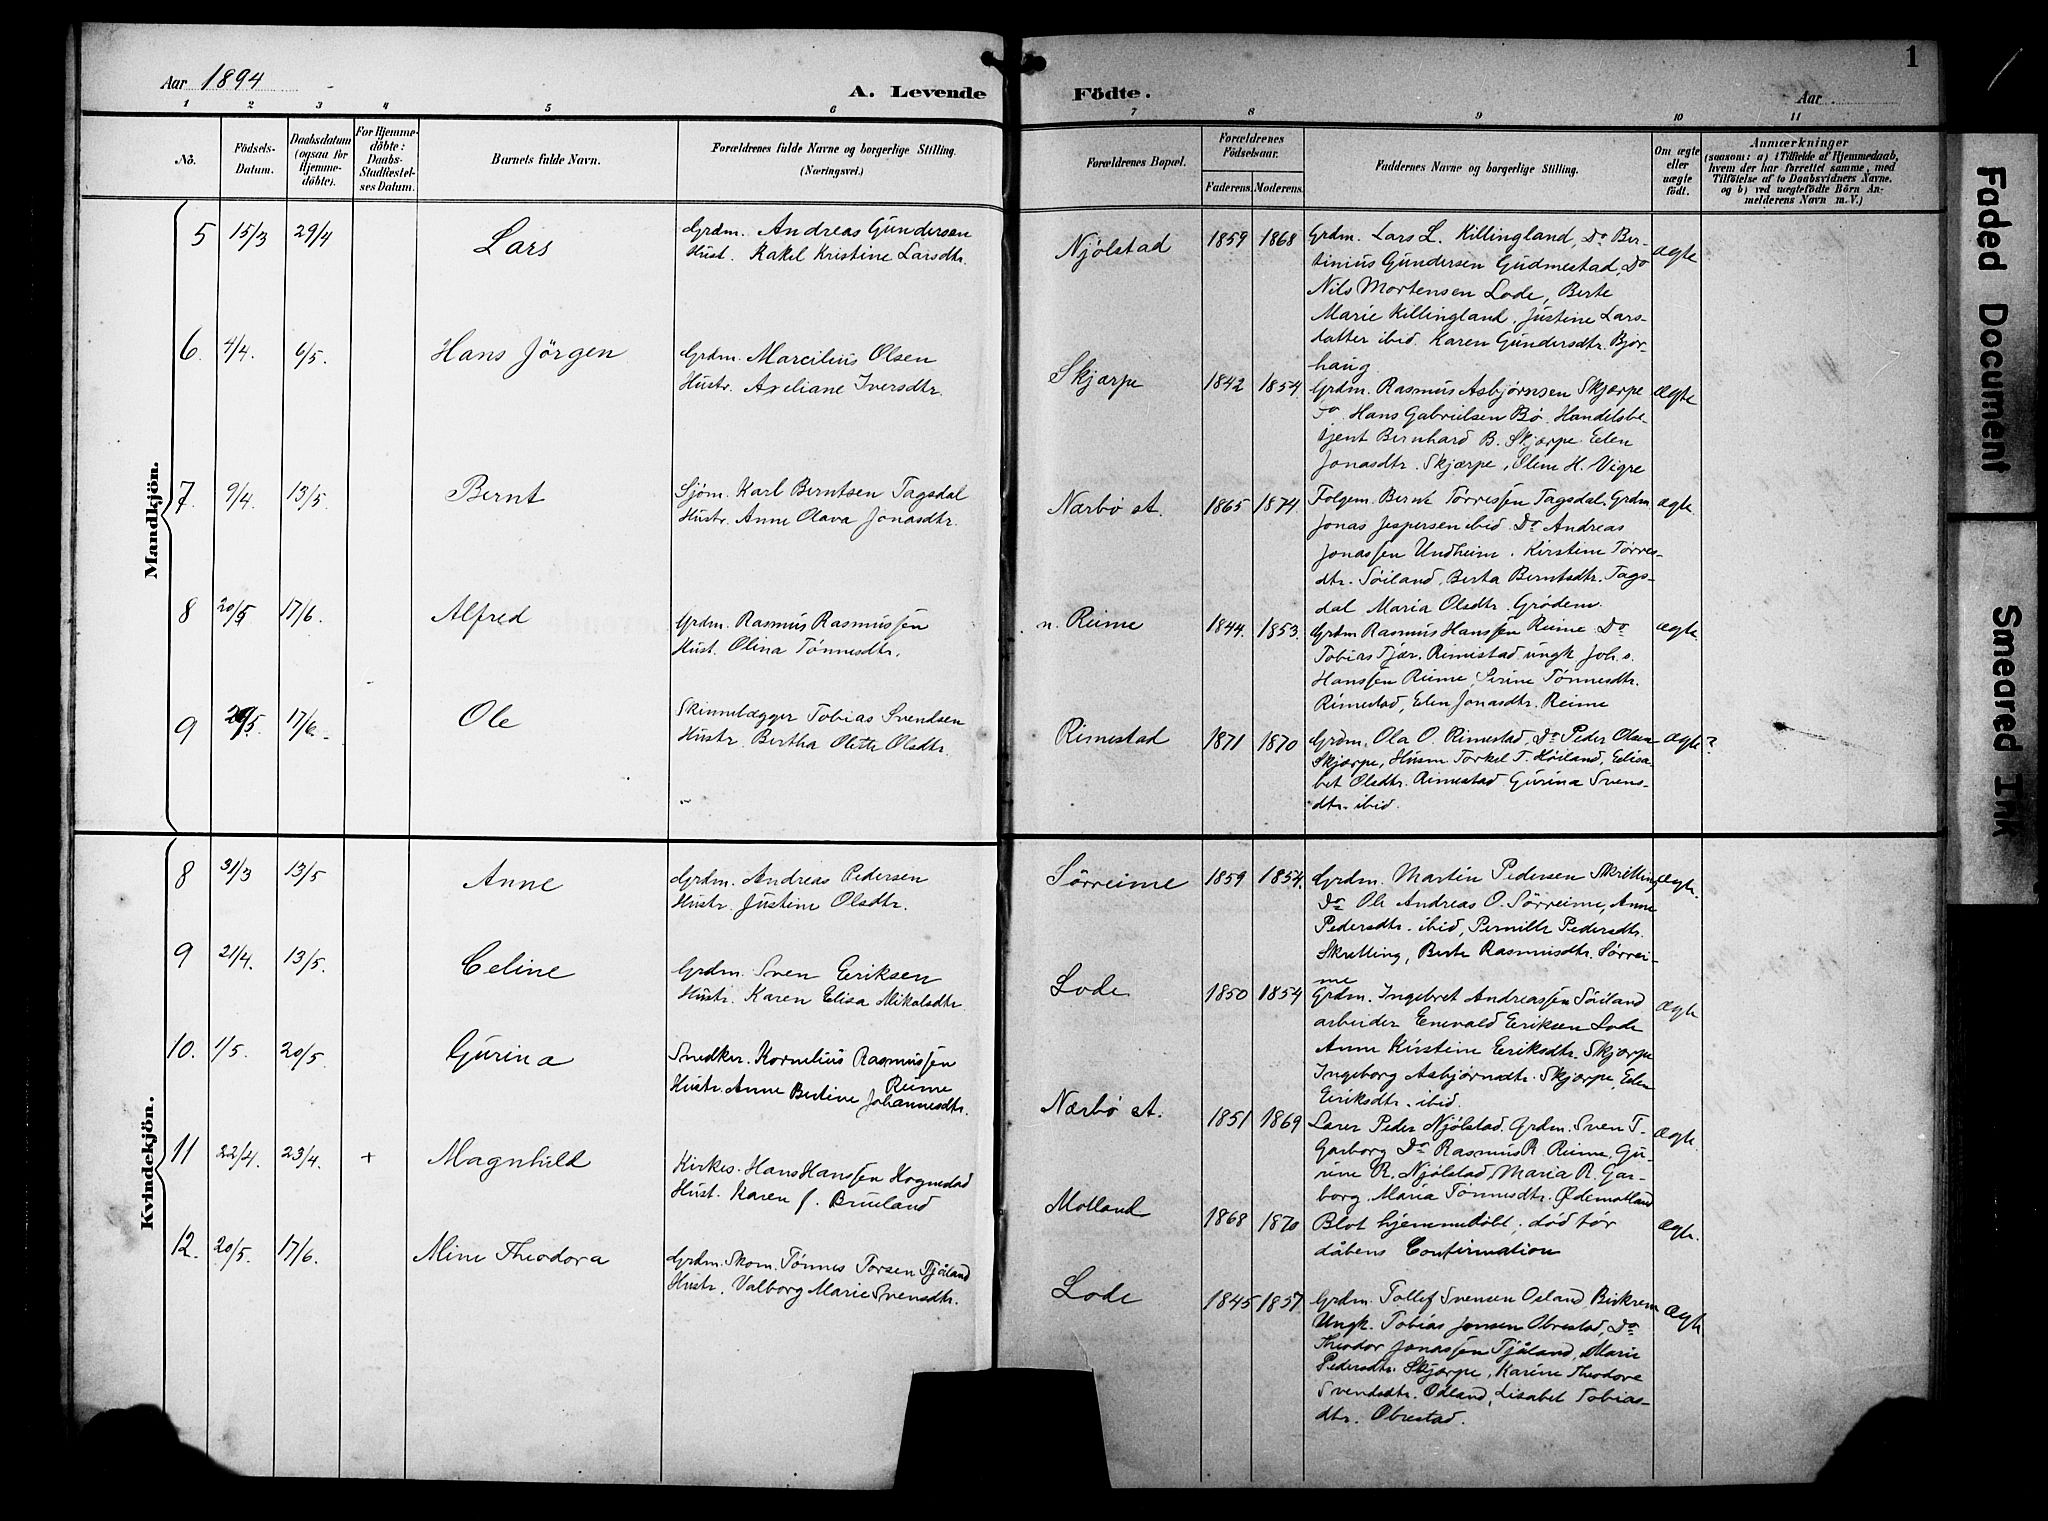 Aar 1894
A. Levende Födte.
Aar
1
1 2 3 4 5 6 7 8 9 10 11
No.
Födsels-
Datum.
Daabsdatum
(ogsaa for
Hjemme-
döbte).
For Hjemme-
döbte:
Daabs-
Stadfæstel-
ses Datum.
Barnets fulde Navn.
Forældrenes fulde Navne og borgerlige Stilling.
(Næringsvei.)
Forældrenes Bopæl.
Forældrenes
Födselsaar.
Faderens. Moderens.
Faddernes Navne og borgerlige Stilling.
Om ægte
eller
uægte
födt.
Anmærkninger
(saasom: a) i Tilfælde af Hjemmedaab,
hvem der har forrettet samme, med
Tilföielse af to Daabsvidners Navne,
og b) ved uægtefödte Börn An-
melderens Navn m. V.)
Mandkjön.
5 15/3 29/4 Lars
Grdm. Andreas Gundersen
Hust. Rakel Kristine Larsdtr.
Njølstad 1859 1868
Grdm. Lars L. Killingland, Do Ber-
tinius Gundersen Gudmestad, Do
Nils Mortensen Lode, Berte
Marie Killingland, Justine Lars-
datter ibid. Karen Gundersdtr. Bjor-
haug
ægte
6. 4/4. 6/5. Hans Jörgen
Grdm. Marcilius Olsen
Hustr. Axeliane Iversdtr.
Skjærpe 1842 1854.
Grdm. Rasmus Asbjørnsen Skjærpe
Do. Hans Gabrielsen Bø. Handelsbe-
tjent Bernhard B. Skjærpe. Elen
Jonasdtr. Skjærpe, Oline H. Vigre
ægte
7. 9/4. 13/5. Bernt
Sjøm. Karl Berntsen Tagsdal
Hustr. Anne Olava Jonasdtr.
Nærbø st. 1865 1874.
Folgem. Bernt Tørressen Tagsdal. Grdm.
Jonas Jespersen ibid. Do Andreas
Jonassen Undheim. Kirstine Tørres-
dtr. Söiland, Berta Berntsdtr. Tags-
dal Maria Olsdtr. Grödem.
ægte.
8 20/5 17/6. Alfred
Grdm. Rasmus Rasmussen
Hust. Olina Tönnesdtr.
n. Reime 1844. 1853.
Grdm Rasmus Hanssen Reime. Do
Tobias Tjær. Rimestad. ungk Joh.s.
Hanssen Reime, Serine Tønnesdtr.
Rimestad, Elen Jonasdtr. Reime
ægte.
9 17/6. Ole
Skinnelægger Tobias Svendsen
Hustr. Bertha Olette Olsdtr.
Rimestad 1871 1870
Grdm. Ola O. Rimestad, Do Peder Olsen
Skjærpe, Husm Torkel T. Høiland, Elisa-
bet Olsdtr. Rimestad. Gurina Svens-
dtr. ibid.
ægte?
Kvindekjön.
8 31/3 13/5 Anne
Grdm. Andreas Pedersen
Hustr. Justine Olsdtr.
Sørreime 1859 1854.
Grdm. Martin Pedersen Skretting
Do Ole Andreas O. Sørreime, Anne
Pedersdtr. ibid, Pernille Pedersdtr.
Skretting, Berte Rasmusdtr. Sørrei-
me
ægte.
9 21/4. 13/5. Celine
Grdm. Sven Eeriksen
Hustr. Karen Elisa Mikalsdtr
Lode 1850 1854
Grdm. Ingebret Andreassen Söiland
arbeider Enevald Eeriksen Lode
Anne Kirstine Eeriksdtr. Skjærpe
Ingeborg Asbjørnsdtr. Skjærpe, Elen
Eeriksdtr. ibid.
ægte
10. 1/5. 20/5 Gurina
Snedker. Kornelius Rasmussen
Reime
Hustr. Anne Bertine Johannesdtr.
Nærbø st. 1851 1869
Lærer Peder Njølstad. Grdm. Sven T.
Garborg Do Rasmus R Reime, Gu-
rine R. Njølstad, Maria R. Gar-
borg. Maria Tönnesdtr. Ødemotland
ægte.
11 22/4. 23/4. + Magnhild
Kirkes. Hans Hanssen Hognestad
Hust. Karen J. Bruland
Motland 1868 1870
Blot hjemmedöbt. död för
dåbens Confirmation
ægte.
12. 20/5. 17/6. Mine Theodora
Grdm. Skom. Tönnes Torsen Tjåland
Hustr. Valborg Marie Svensdtr.
Lode 1845 1857.
Grdm. Tollef Svensen Oeland, Birkrem
Ungk. Tobias Jonsen Obrestad, Do
Theodor Jonassen Tjåland, Marie
Pedersdtr. Skjærpe, Karine Theodore
Svendsdtr. Odland, Lisabet Tobias-
dtr. Obrestad.
ægte
Faded Document
Smeared Ink